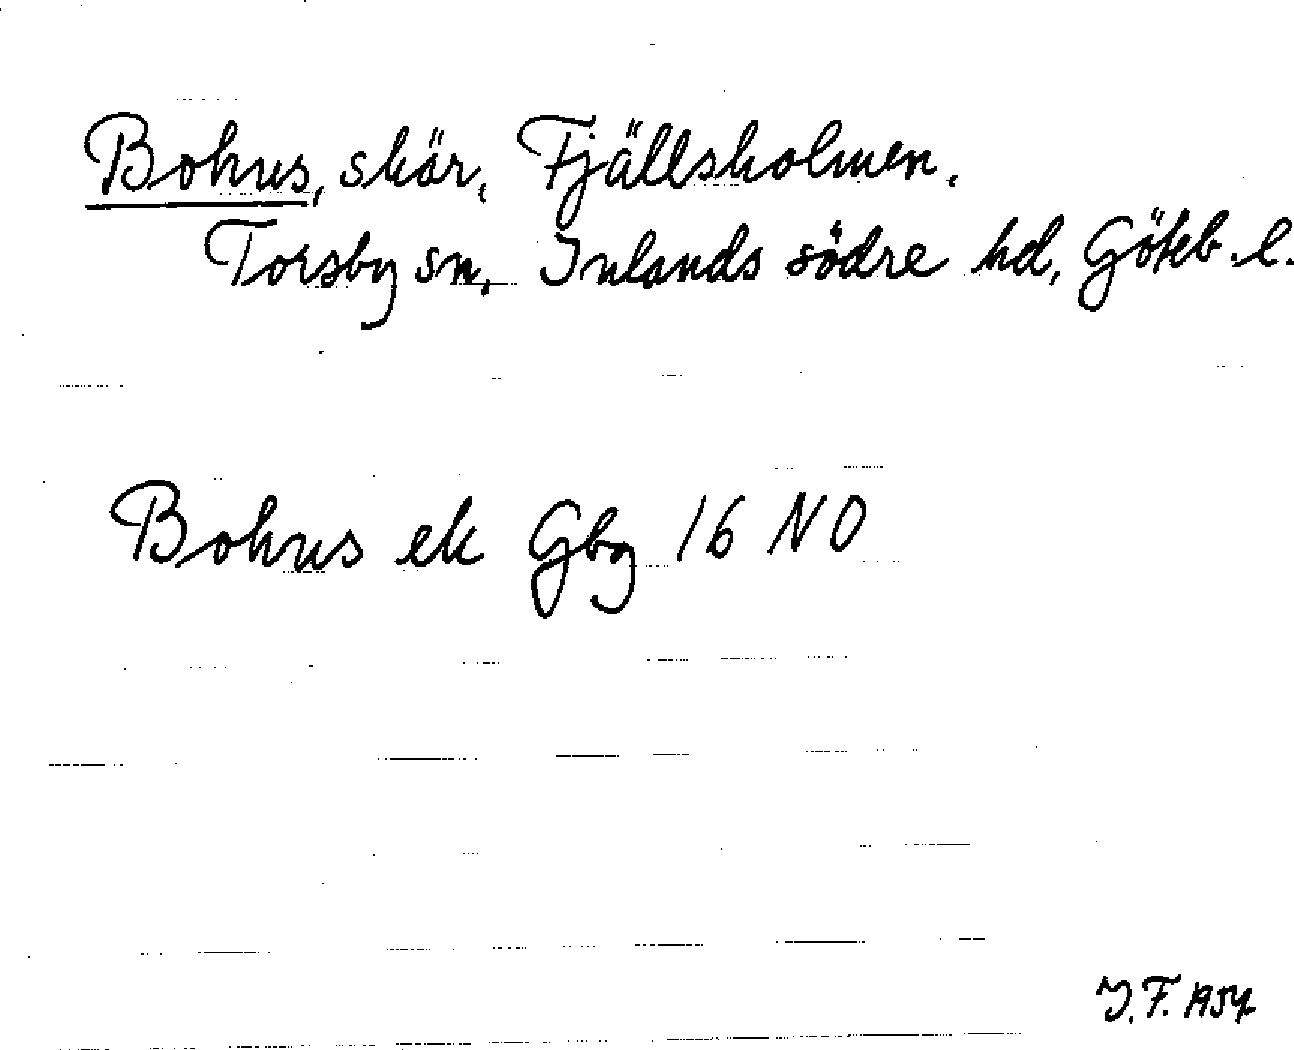 Bohus, skär, Fjällsholmen.
Torsby sn, Inlands södre hd, Göteb. l.
Bohus ek Gbg 16 NO
J. F. 1954